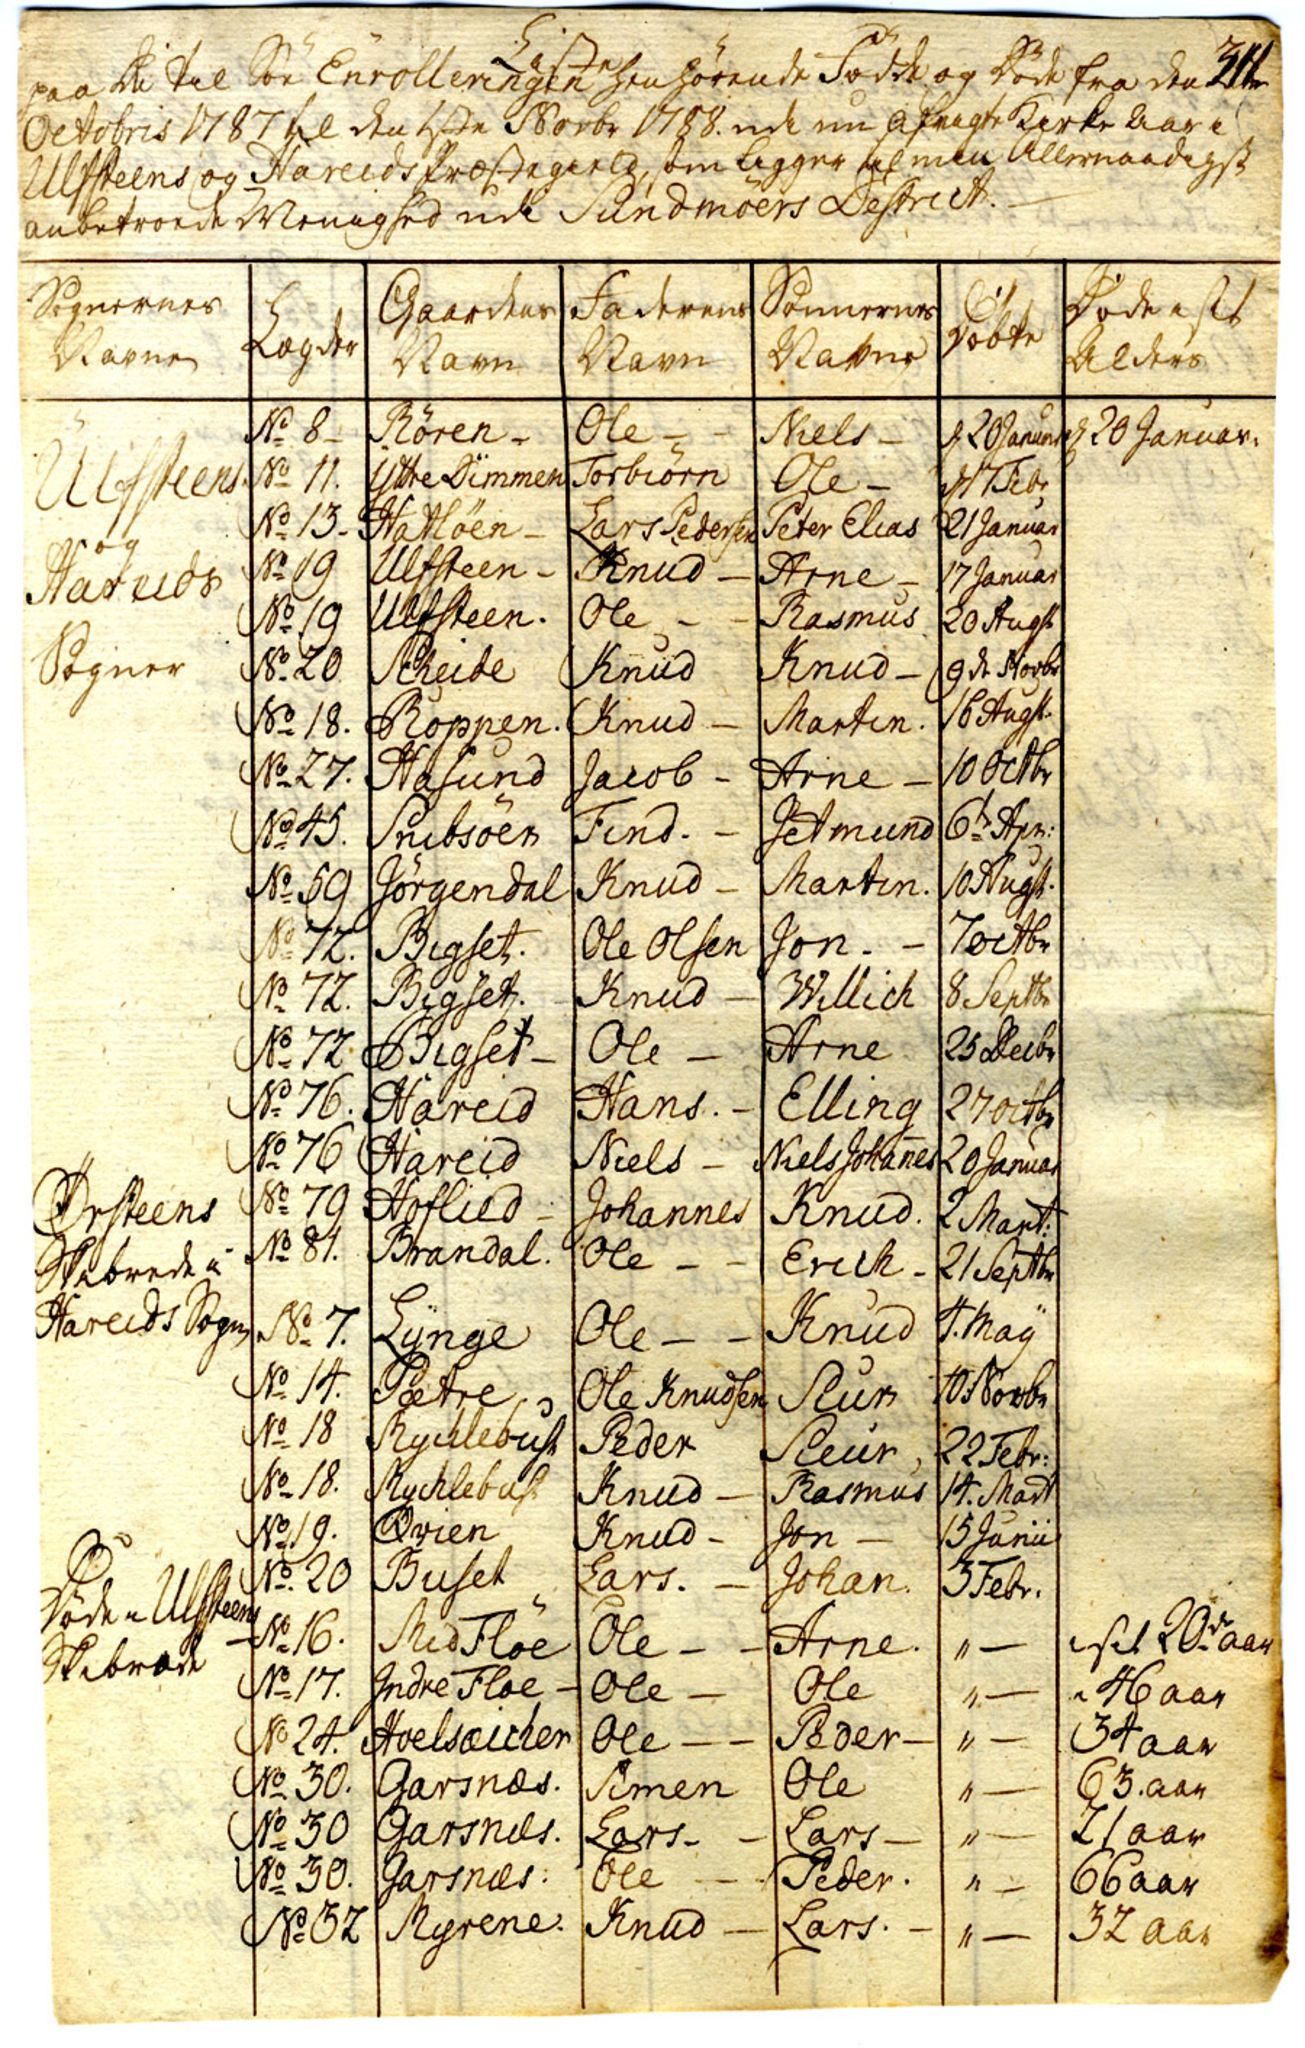 Liste
paa de til Söe Enrolleringen henhörende Födde og Döde fra den
Octobris 1787 til den 1ste Novbr 1788. udi Kirke Aar i
Ulfsteens og Hareids Præstegield, som ligger til min Allernaadigst
anbetroede Menighed udi Sundmöers District.
Sognernes Navne | Lægder | Gaardens Navn | Faderens Navn | Sönnernes Navne | Döbte | Döde Alders
Ulfsteens | No 8 | Rören | Ole | Niels | 20 Januar | 20 Januar.
No 11. | Yttre Dimmen | Torbiörn | Ole | Febr
og | No 13 | Hatlöen | Lars Pedersen | Peter Elias | 21 Januar
Hareids | No 19 | Ulfsteen | Knud | Arne | 17 Januar
No 19 | Ulfsteen. | Ole | Rasmus | 20 Augst
Sogner | No 20 | Skeide | Knud | Knud | 9de Novbr
No 18. | Roppen. | Knud | Martin. | 16 Augst.
No 27. | Hasund | Jacob | Arne | 10 Octbr
No 45. | Snibsöer | Find. | Jetmund | 6te Apr:
No 59 | Jörgendal | Knud | Martin. | 10 Augst.
No 72. | Bigset. | Ole Olsen | Jon | 7 octbr
No 72. | Bigset. | Knud | Willich | 8 Septbr
No 72 | Bigset | Ole | Arne | 25 Decbr
No 76. | Hareid | Hans. | Elling | 27 octbr
No 76 | Hareid | Niels | Niels Johannes | 20 Januar
Ørsteens | No 79 | Hoflied | Johannes | Knud. | 2 Mart:
Skibrede i | No 81. | Brandal. | Ole | Erich | 21 Septbr
Hareids Sogn | No 7. | Lÿnge | Ole | Knud | 4. Maÿ
No 14. | Pætre | Ole Knudsen | Siur | 10 Novbr
No 18 | Rychlebust | Peder | Siur | 22 Febr:
No 18. | Rychlebust | Knud | Rasmus | 14. Mart
No 19. | Øvien | Knud | Jon | 15 Junii
No. 20 | Buset | Lars. | Johan. | 3 Febr.
Döde i Ulfsteens | No 16. | Mid Flöe | Ole | Arne. | „ | 20de aar
Skibrede | No 17. | Indre Floe | Ole | Ole | „ | 46 aar
No 24. | Hoelsæicher | Ole | Peder | „ | 34 aar
No 30. | Garsnæs. | Simen | Ole | „ | 63. aar
No 30 | Garsnæs. | Lars | Lars | „ | 21 aar
No 30. | Garsnæs: | Ole | Peder. | „ | 66 aar
No 32 | Myrene. | Knud | Lars. | „ | 32 aar